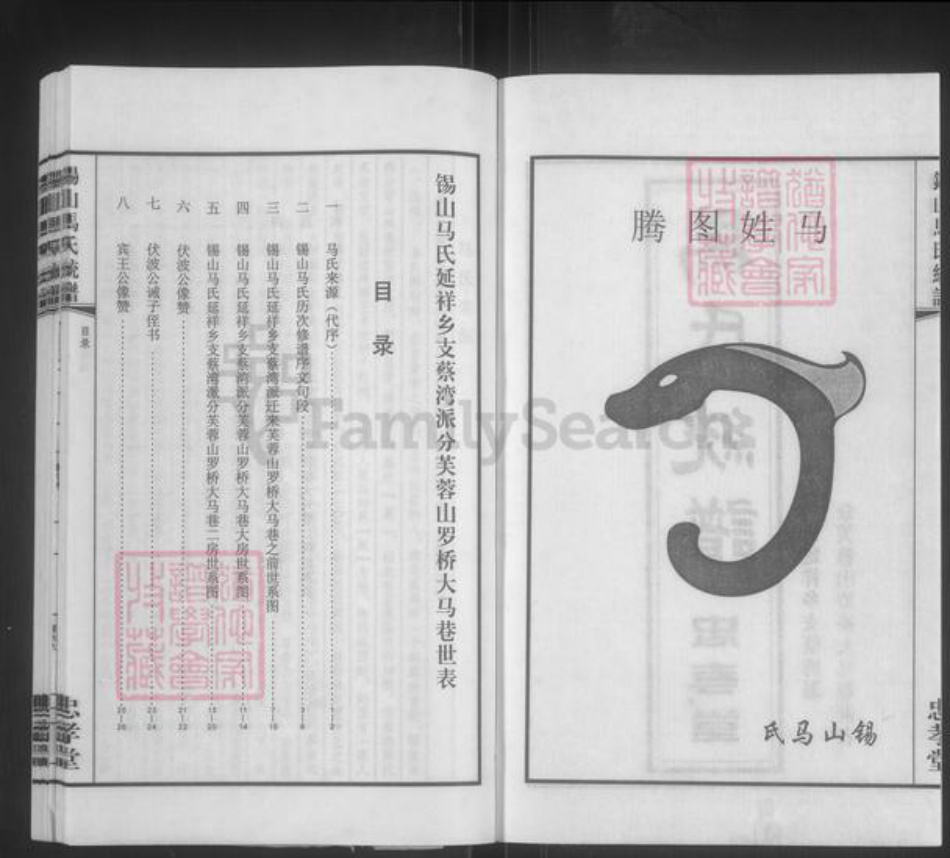 马姓图腾
锡山马氏
忠孝堂
锡山马氏延祥乡支蔡湾派分芙蓉山罗桥大马巷世表
目录
一 马氏来源（代序） 1—2
二 锡山马氏历次修谱序文句段
三 锡山马氏延祥乡支蔡湾派迁来芙蓉山罗桥大马巷之前世系图
四 锡山马氏延祥乡支蔡湾派分芙蓉山罗桥大马巷大房世系图 11—14
五 锡山马氏延祥乡支蔡湾派分芙蓉山罗桥大马巷二房世系图
六 伏波公像赞 21—22
七 伏波公诫子侄书 23—24
八 宾王公像赞 25—26
锡山马氏统谱
目录
忠孝堂
FamilySearch